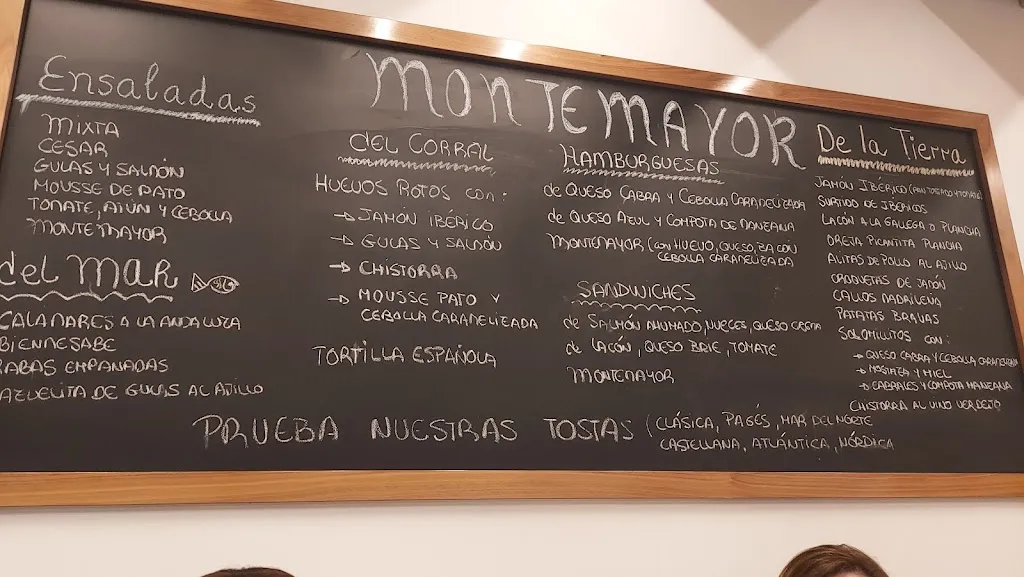 MONTEMAYOR
Ensaladas
MIXTA
CESAR
GULAS Y SALMÓN
MOUSSE DE PATO
TOMATE, ATÚN Y CEBOLLA
MONTEMAYOR
del MAR
CALAMARES A LA ANDALUZA
BIENMESABE
RABAS EMPANADAS
CAZUELITA DE GULAS AL AJILLO
del CORRAL
HUEVOS ROTOS CON:
→ JAMÓN IBÉRICO
→ GULAS Y SALMÓN
→ CHISTORRA
→ MOUSSE PATO Y
CEBOLLA CARAMELIZADA
TORTILLA ESPAÑOLA
HAMBURGUESAS
de QUESO CABRA Y CEBOLLA CARAMELIZADA
de QUESO AZUL Y COMPOTA DE MANZANA
MONTEMAYOR (CON HUEVO, QUESO, BACON
CEBOLLA CARAMELIZADA)
SANDWICHES
de SALMÓN AHUMADO, NUECES, QUESO CREMA
de LACÓN, QUESO BRIE, TOMATE
MONTEMAYOR
De la Tierra
JAMÓN IBÉRICO (PAN TOSTADO Y TOMATE)
SURTIDO DE IBÉRICOS
LACÓN A LA GALLEGA O PLANCHA
OREJA PICANTITA PLANCHA
ALITAS DE POLLO AL AJILLO
CROQUETAS DE JAMÓN
CALLOS MADRILEÑA
PATATAS BRAVAS
SOLOMILLITOS CON:
→ QUESO CABRA Y CEBOLLA CARAMELIZADA
→ MOSTAZA Y MIEL
→ CABRALES Y COMPOTA MANZANA
CHISTORRA AL VINO VERDEJO
PRUEBA NUESTRAS TOSTAS (CLÁSICA, PAGÉS, MAR DEL NORTE
CASTELLANA, ATLÁNTICA, NÓRDICA